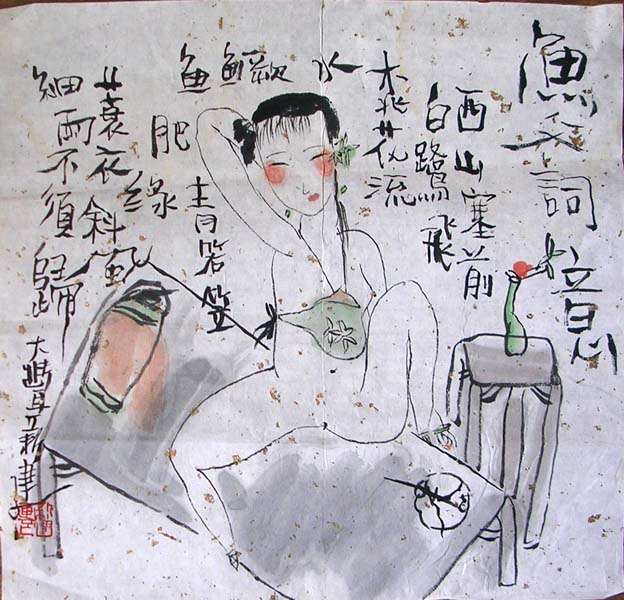 魚父詞意
西山塞前
白鷺飛
桃花流
水
鱖
鱼
肥
青箬笠
綠
蓑衣斜風
細雨不須歸